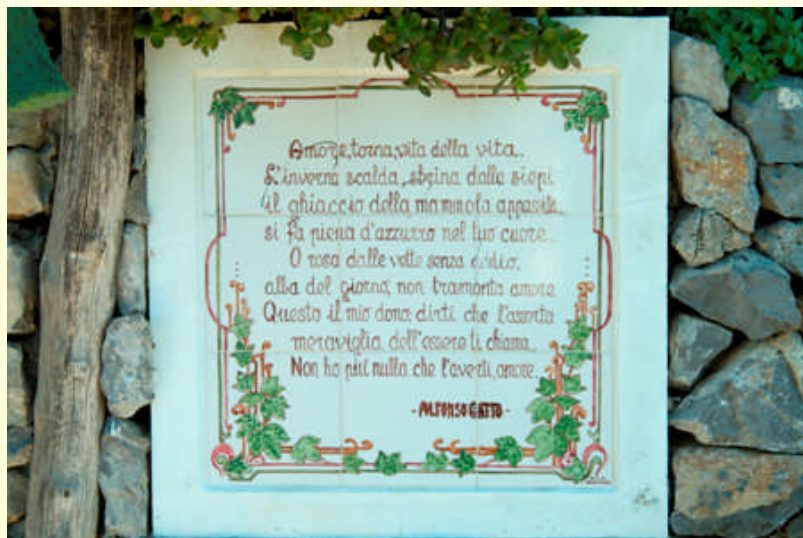 Amore, torna, vita della vita.
L'inverno scalda, sbrina dalle siepi
il ghiaccio della mammola appassita,
si fa piena d'azzurro nel tuo cuore.
O rosa dalle vette senza
alba del giorno, non tramonta amore
Questo il mio dono dirti che l'assorta
meraviglia dell'essere ti chiama.
Non ho più nulla che l'averti, amore.
- ALFONSO GATTO -